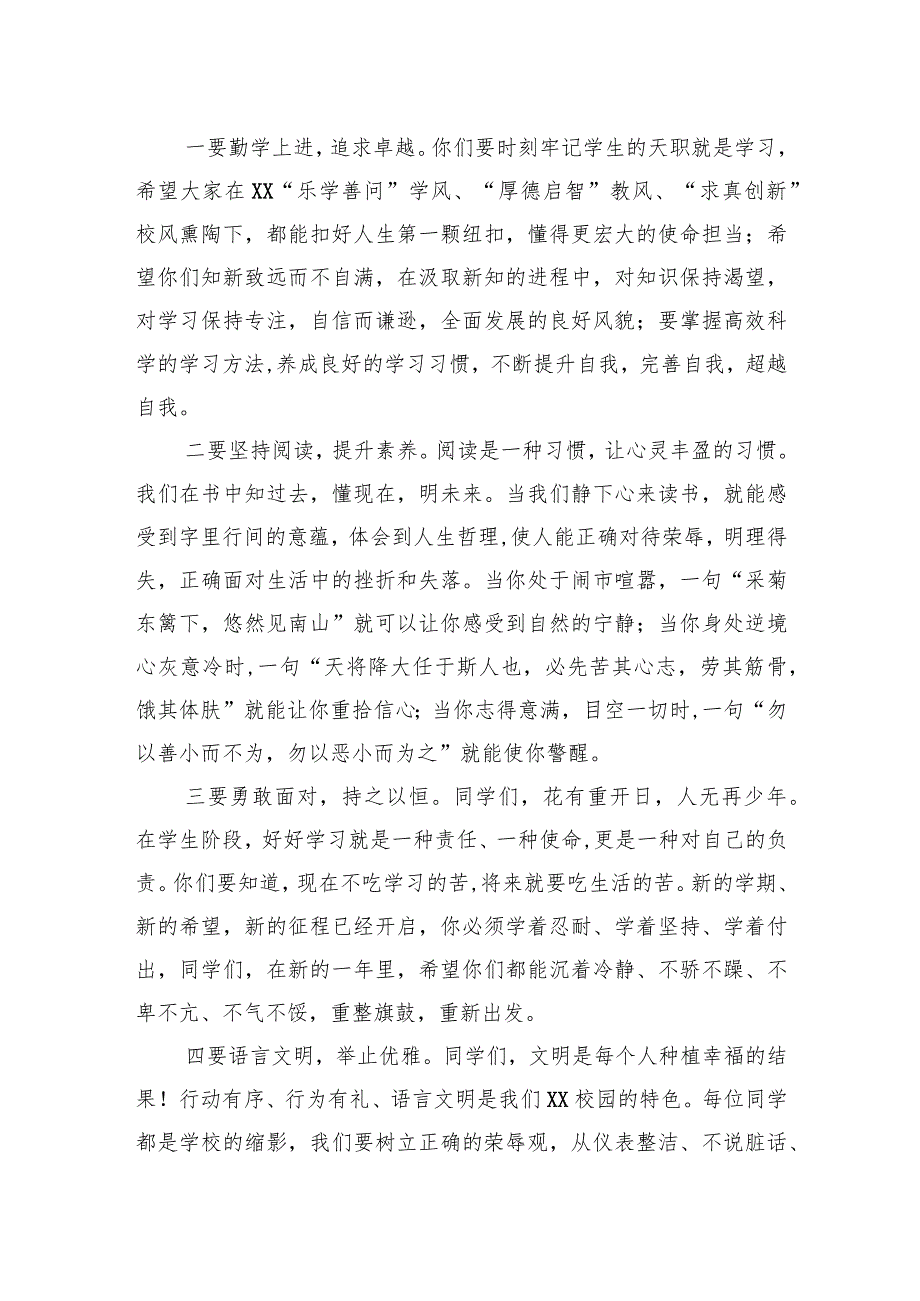 一要勤学上进，追求卓越。你们要时刻牢记学生的天职就是学习，
希望大家在 XX“乐学善问”学风、“厚德启智”教风、“求真创新”
校风熏陶下，都能扣好人生第一颗纽扣，懂得更宏大的使命担当；希
望你们知新致远而不自满，在汲取新知的进程中，对知识保持渴望，
对学习保持专注，自信而谦逊，全面发展的良好风貌；要掌握高效科
学的学习方法,养成良好的学习习惯，不断提升自我，完善自我，超越
自我。
二要坚持阅读，提升素养。阅读是一种习惯，让心灵丰盈的习惯。
我们在书中知过去，懂现在，明未来。当我们静下心来读书，就能感
受到字里行间的意蕴，体会到人生哲理,使人能正确对待荣辱，明理得
失，正确面对生活中的挫折和失落。当你处于闹市喧嚣，一句“采菊
东篱下，悠然见南山”就可以让你感受到自然的宁静；当你身处逆境
心灰意冷时,一句“天将降大任于斯人也，必先苦其心志，劳其筋骨，
饿其体肤”就能让你重拾信心；当你志得意满，目空一切时,一句“勿
以善小而不为，勿以恶小而为之”就能使你警醒。
三要勇敢面对，持之以恒。同学们，花有重开日，人无再少年。
在学生阶段，好好学习就是一种责任、一种使命,更是一种对自己的负
责。你们要知道，现在不吃学习的苦,将来就要吃生活的苦。新的学期、
新的希望，新的征程已经开启，你必须学着忍耐、学着坚持、学着付
出，同学们，在新的一年里，希望你们都能沉着冷静、不骄不躁、不
卑不亢、不气不馁，重整旗鼓，重新出发。
四要语言文明，举止优雅。同学们，文明是每个人种植幸福的结
果！行动有序、行为有礼、语言文明是我们 XX 校园的特色。每位同学
都是学校的缩影，我们要树立正确的荣辱观，从仪表整洁、不说脏话、